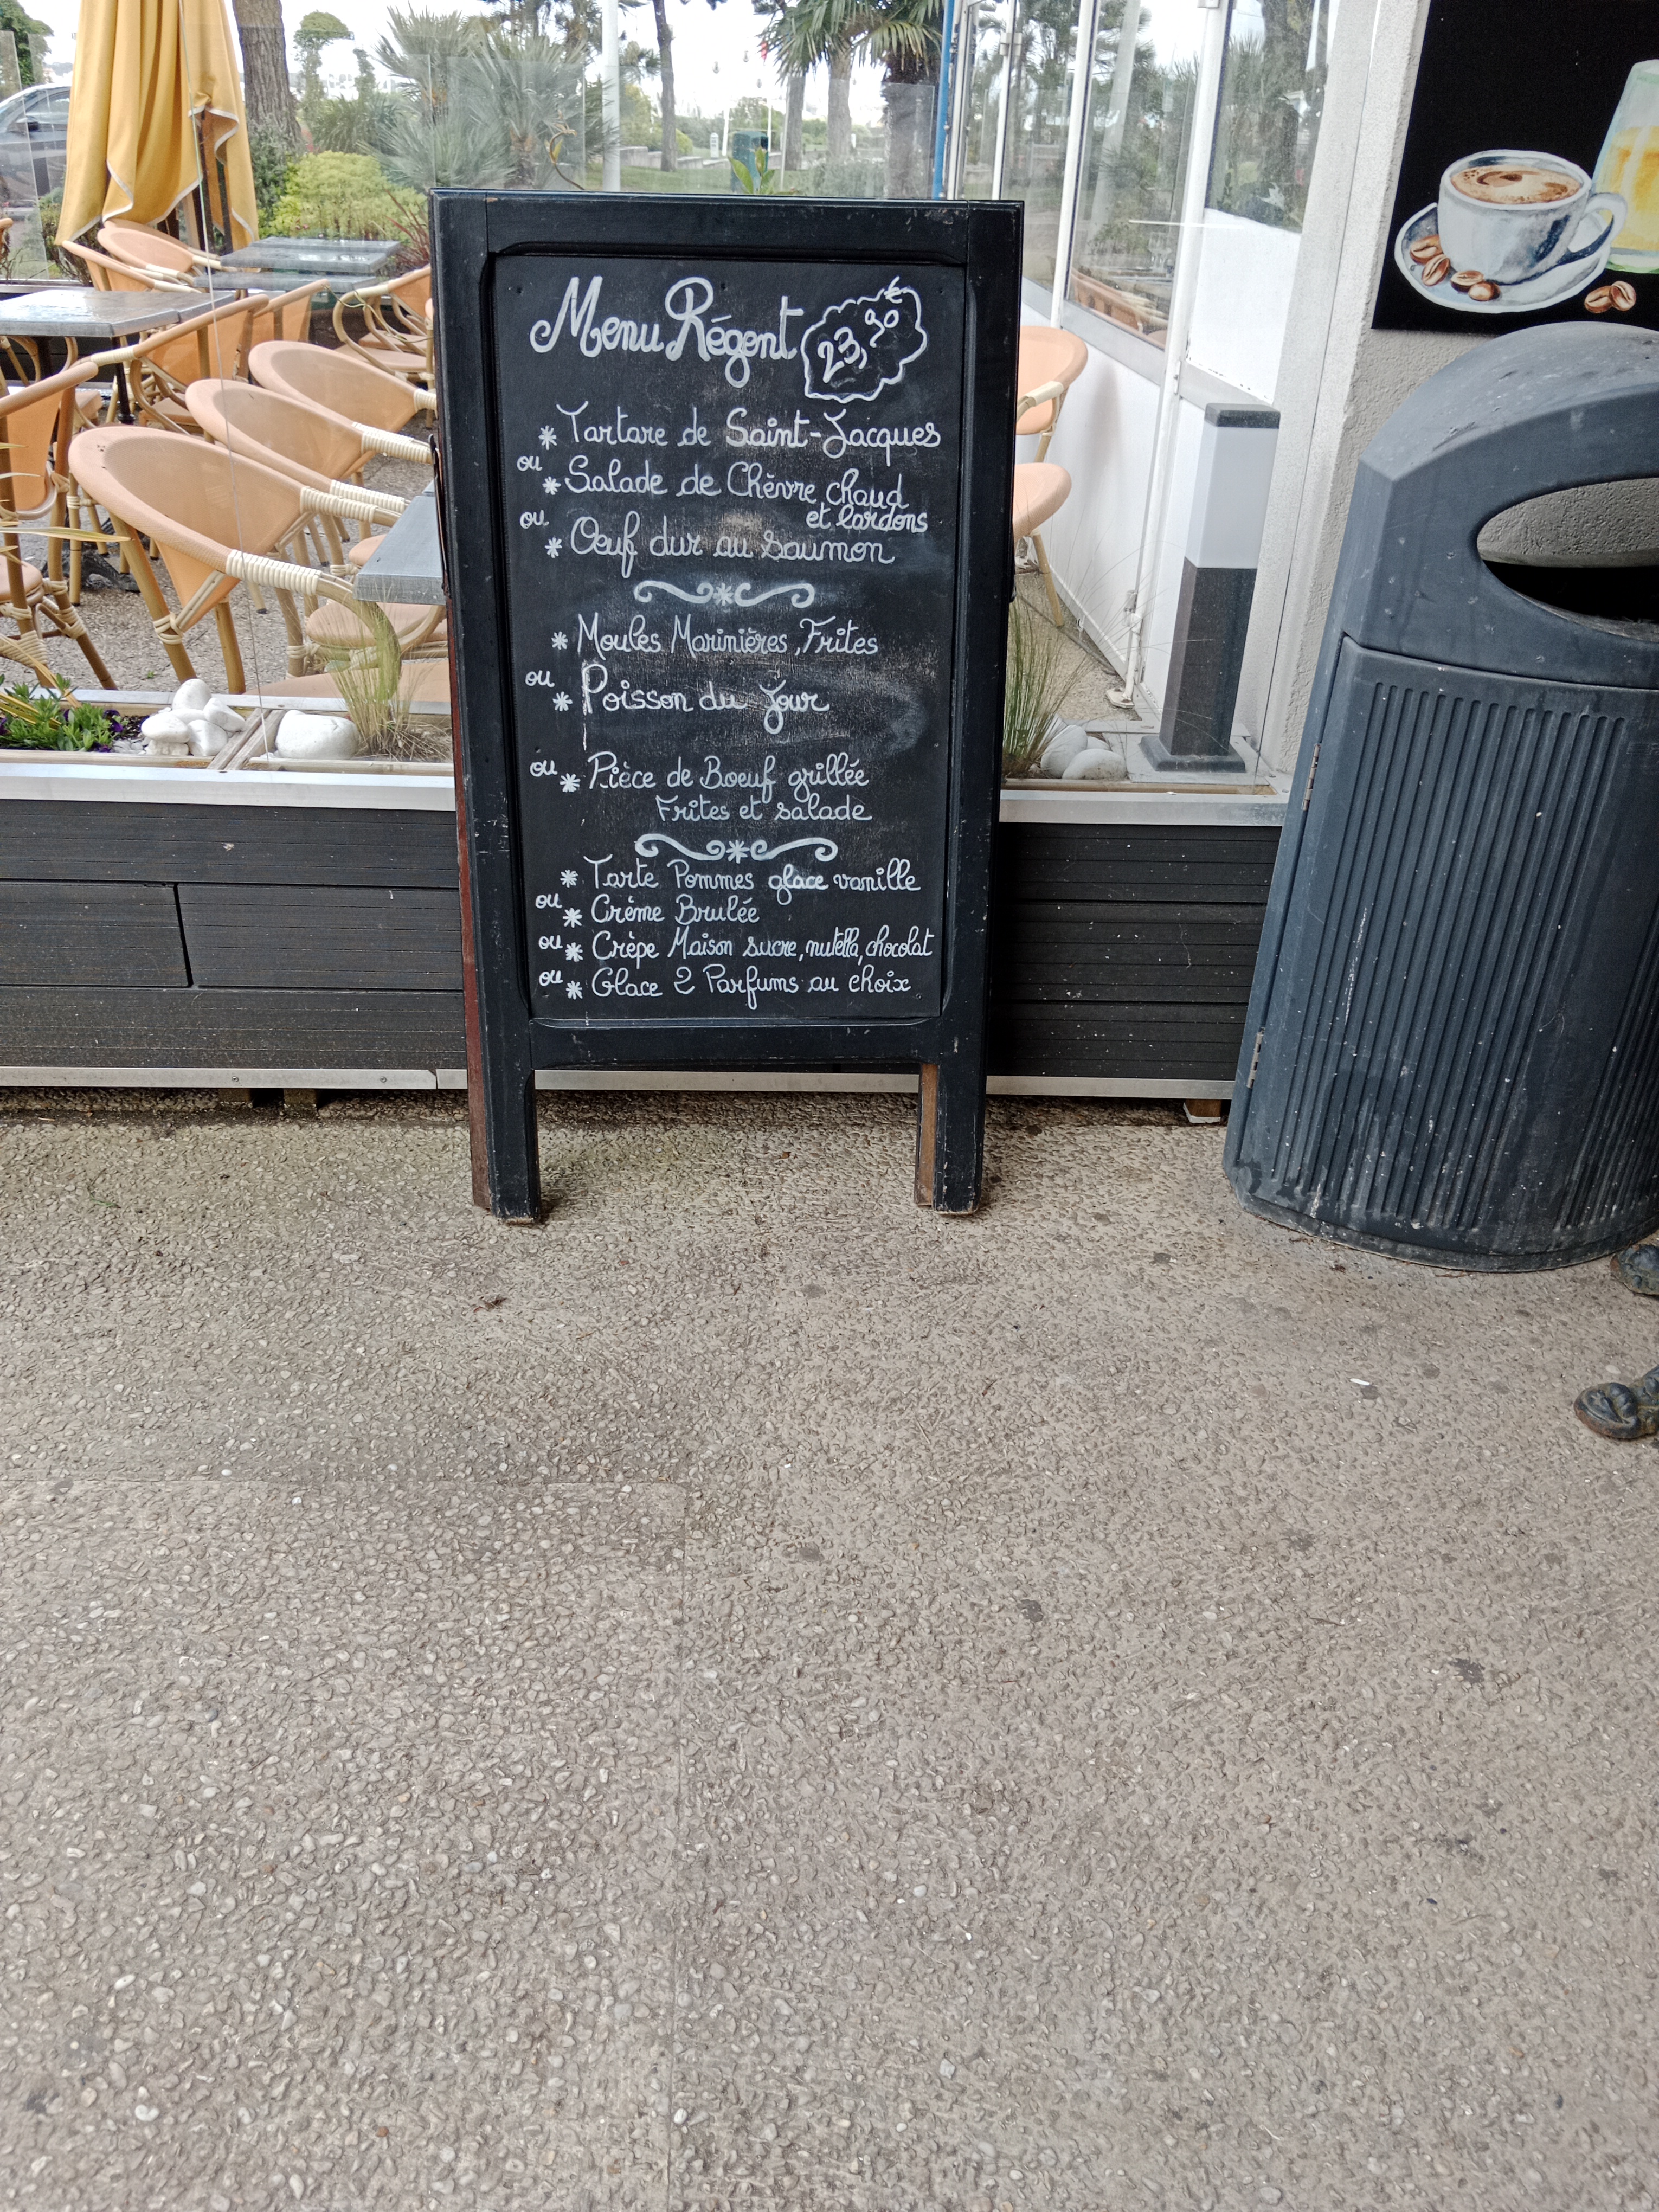 Menu Régent 23,90 €
* Tartare de Saint-Jacques
ou
* Salade de Chèvre chaud
et lardons
ou
* Oeuf dur au saumon
* Moules Marinières, Frites
ou
* Poisson du jour
ou
* Pièce de Boeuf grillée
Frites et salade
* Tarte Pommes glace vanille
ou
* Crème Brulée
ou
* Crèpe Maison sucre, nutella, chocolat
ou
* Glace 2 Parfums au choix